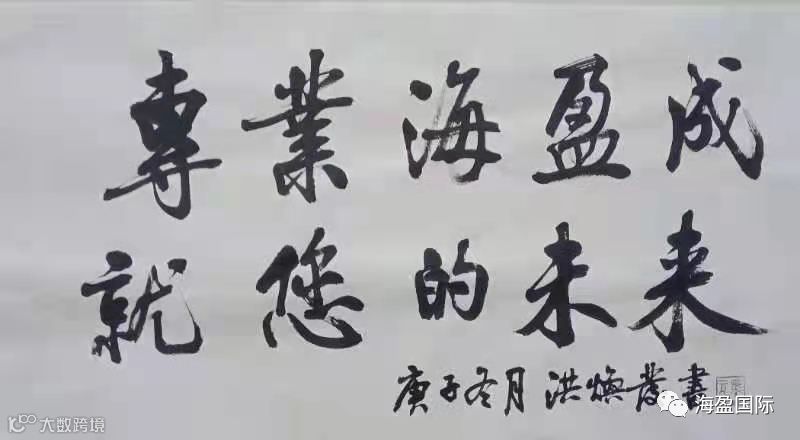 專業海盈成
就您的未来
庚子冬月 洪焕發書
海盈国际
大数跨境